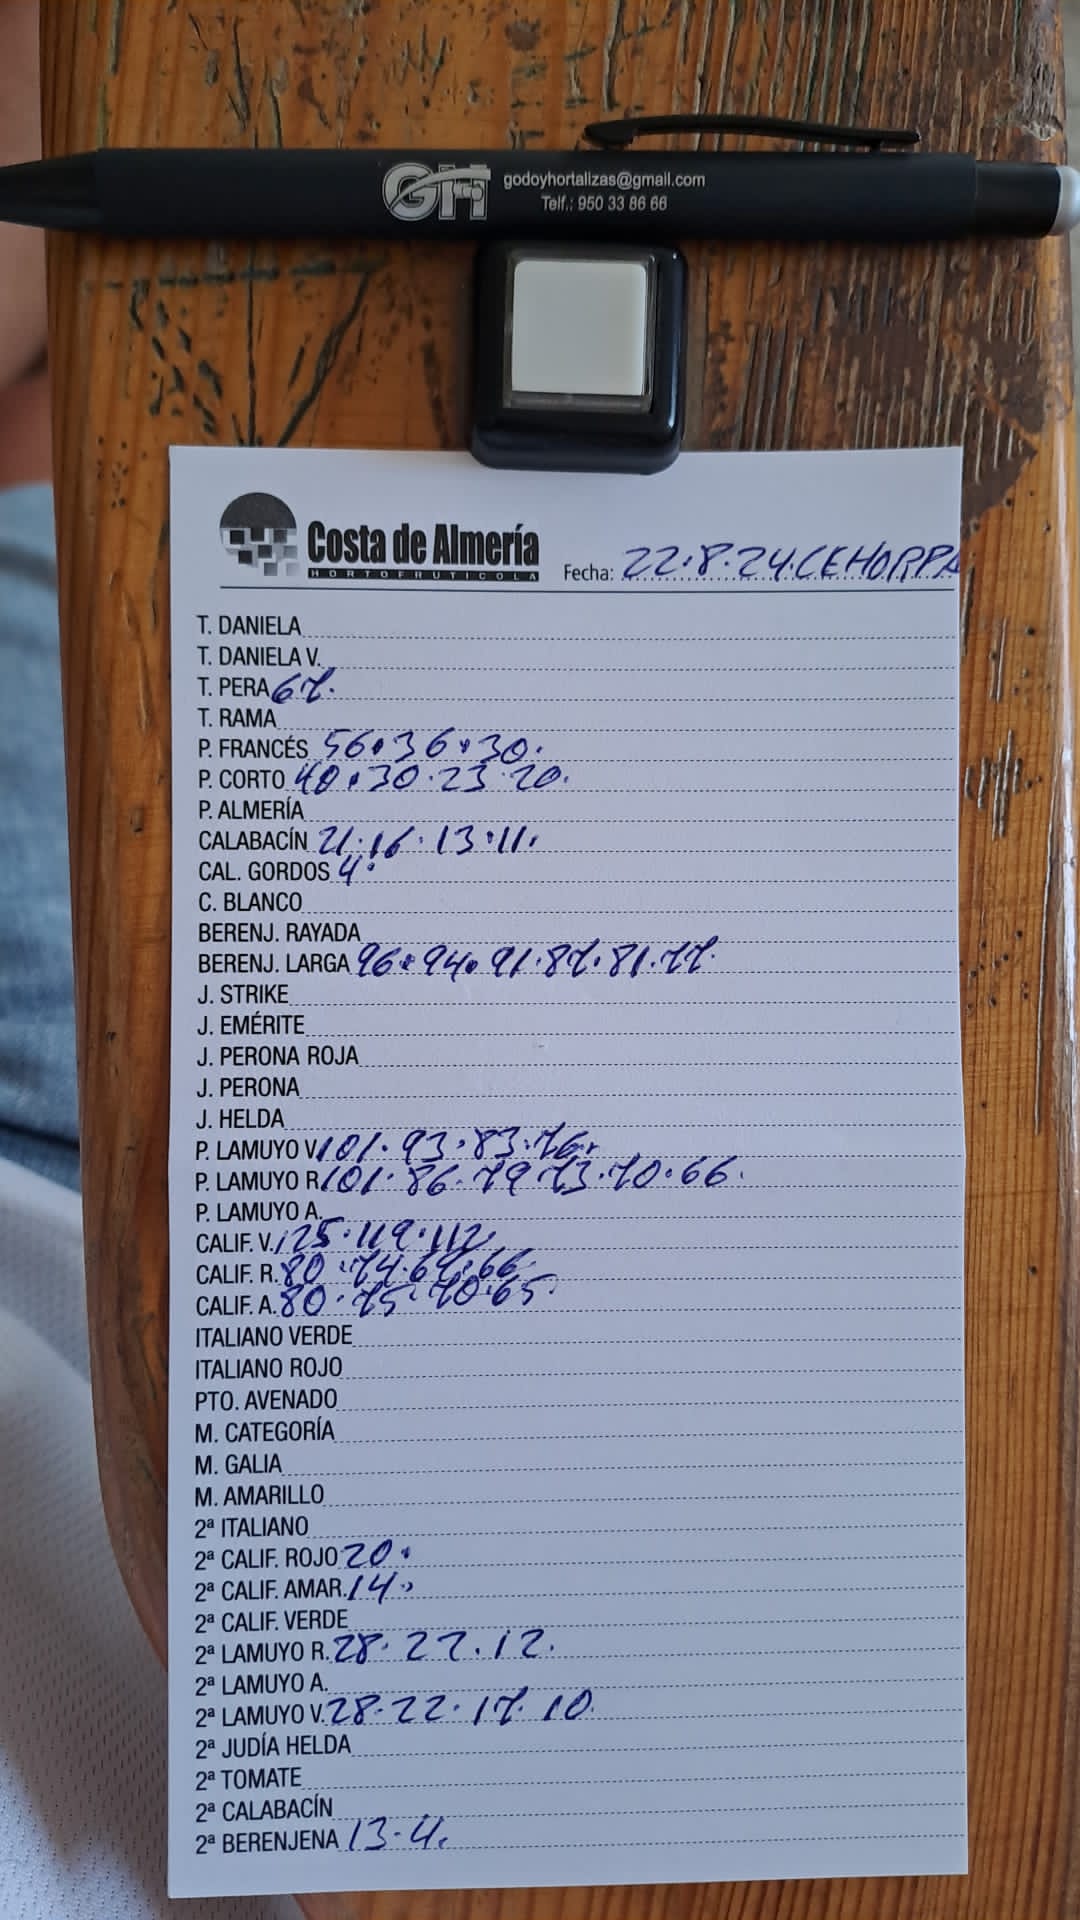 GH godoyhortalizas@gmail.com
Telf.: 950 33 86 66
Costa de Almería
HORTOFRUTICOLA
Fecha: 22.8.24.CEHORPA
T. DANIELA
T. DANIELA V.
T. PERA 67.
T. RAMA
P. FRANCÉS 56.36.30.
P. CORTO 40.30.23.20.
P. ALMERÍA
CALABACÍN 21.16.13.11.
CAL. GORDOS 4.
C. BLANCO
BERENJ. RAYADA
BERENJ. LARGA 96.94.91.87.81.77.
J. STRIKE
J. EMÉRITE
J. PERONA ROJA
J. PERONA
J. HELDA
P. LAMUYO V. 101.93.83.76.
P. LAMUYO R. 101.86.79.73.70.66.
P. LAMUYO A.
CALIF. V. 125.119.112.
CALIF. R. 80.74.67.66.
CALIF. A. 80.75.70.65.
ITALIANO VERDE
ITALIANO ROJO
PTO. AVENADO
M. CATEGORÍA
M. GALIA
M. AMARILLO
2ª ITALIANO
2ª CALIF. ROJO 20.
2ª CALIF. AMAR. 14.
2ª CALIF. VERDE
2ª LAMUYO R. 28.22.12.
2ª LAMUYO A.
2ª LAMUYO V. 28.22.17.10.
2ª JUDÍA HELDA
2ª TOMATE
2ª CALABACÍN
2ª BERENJENA 13.4.